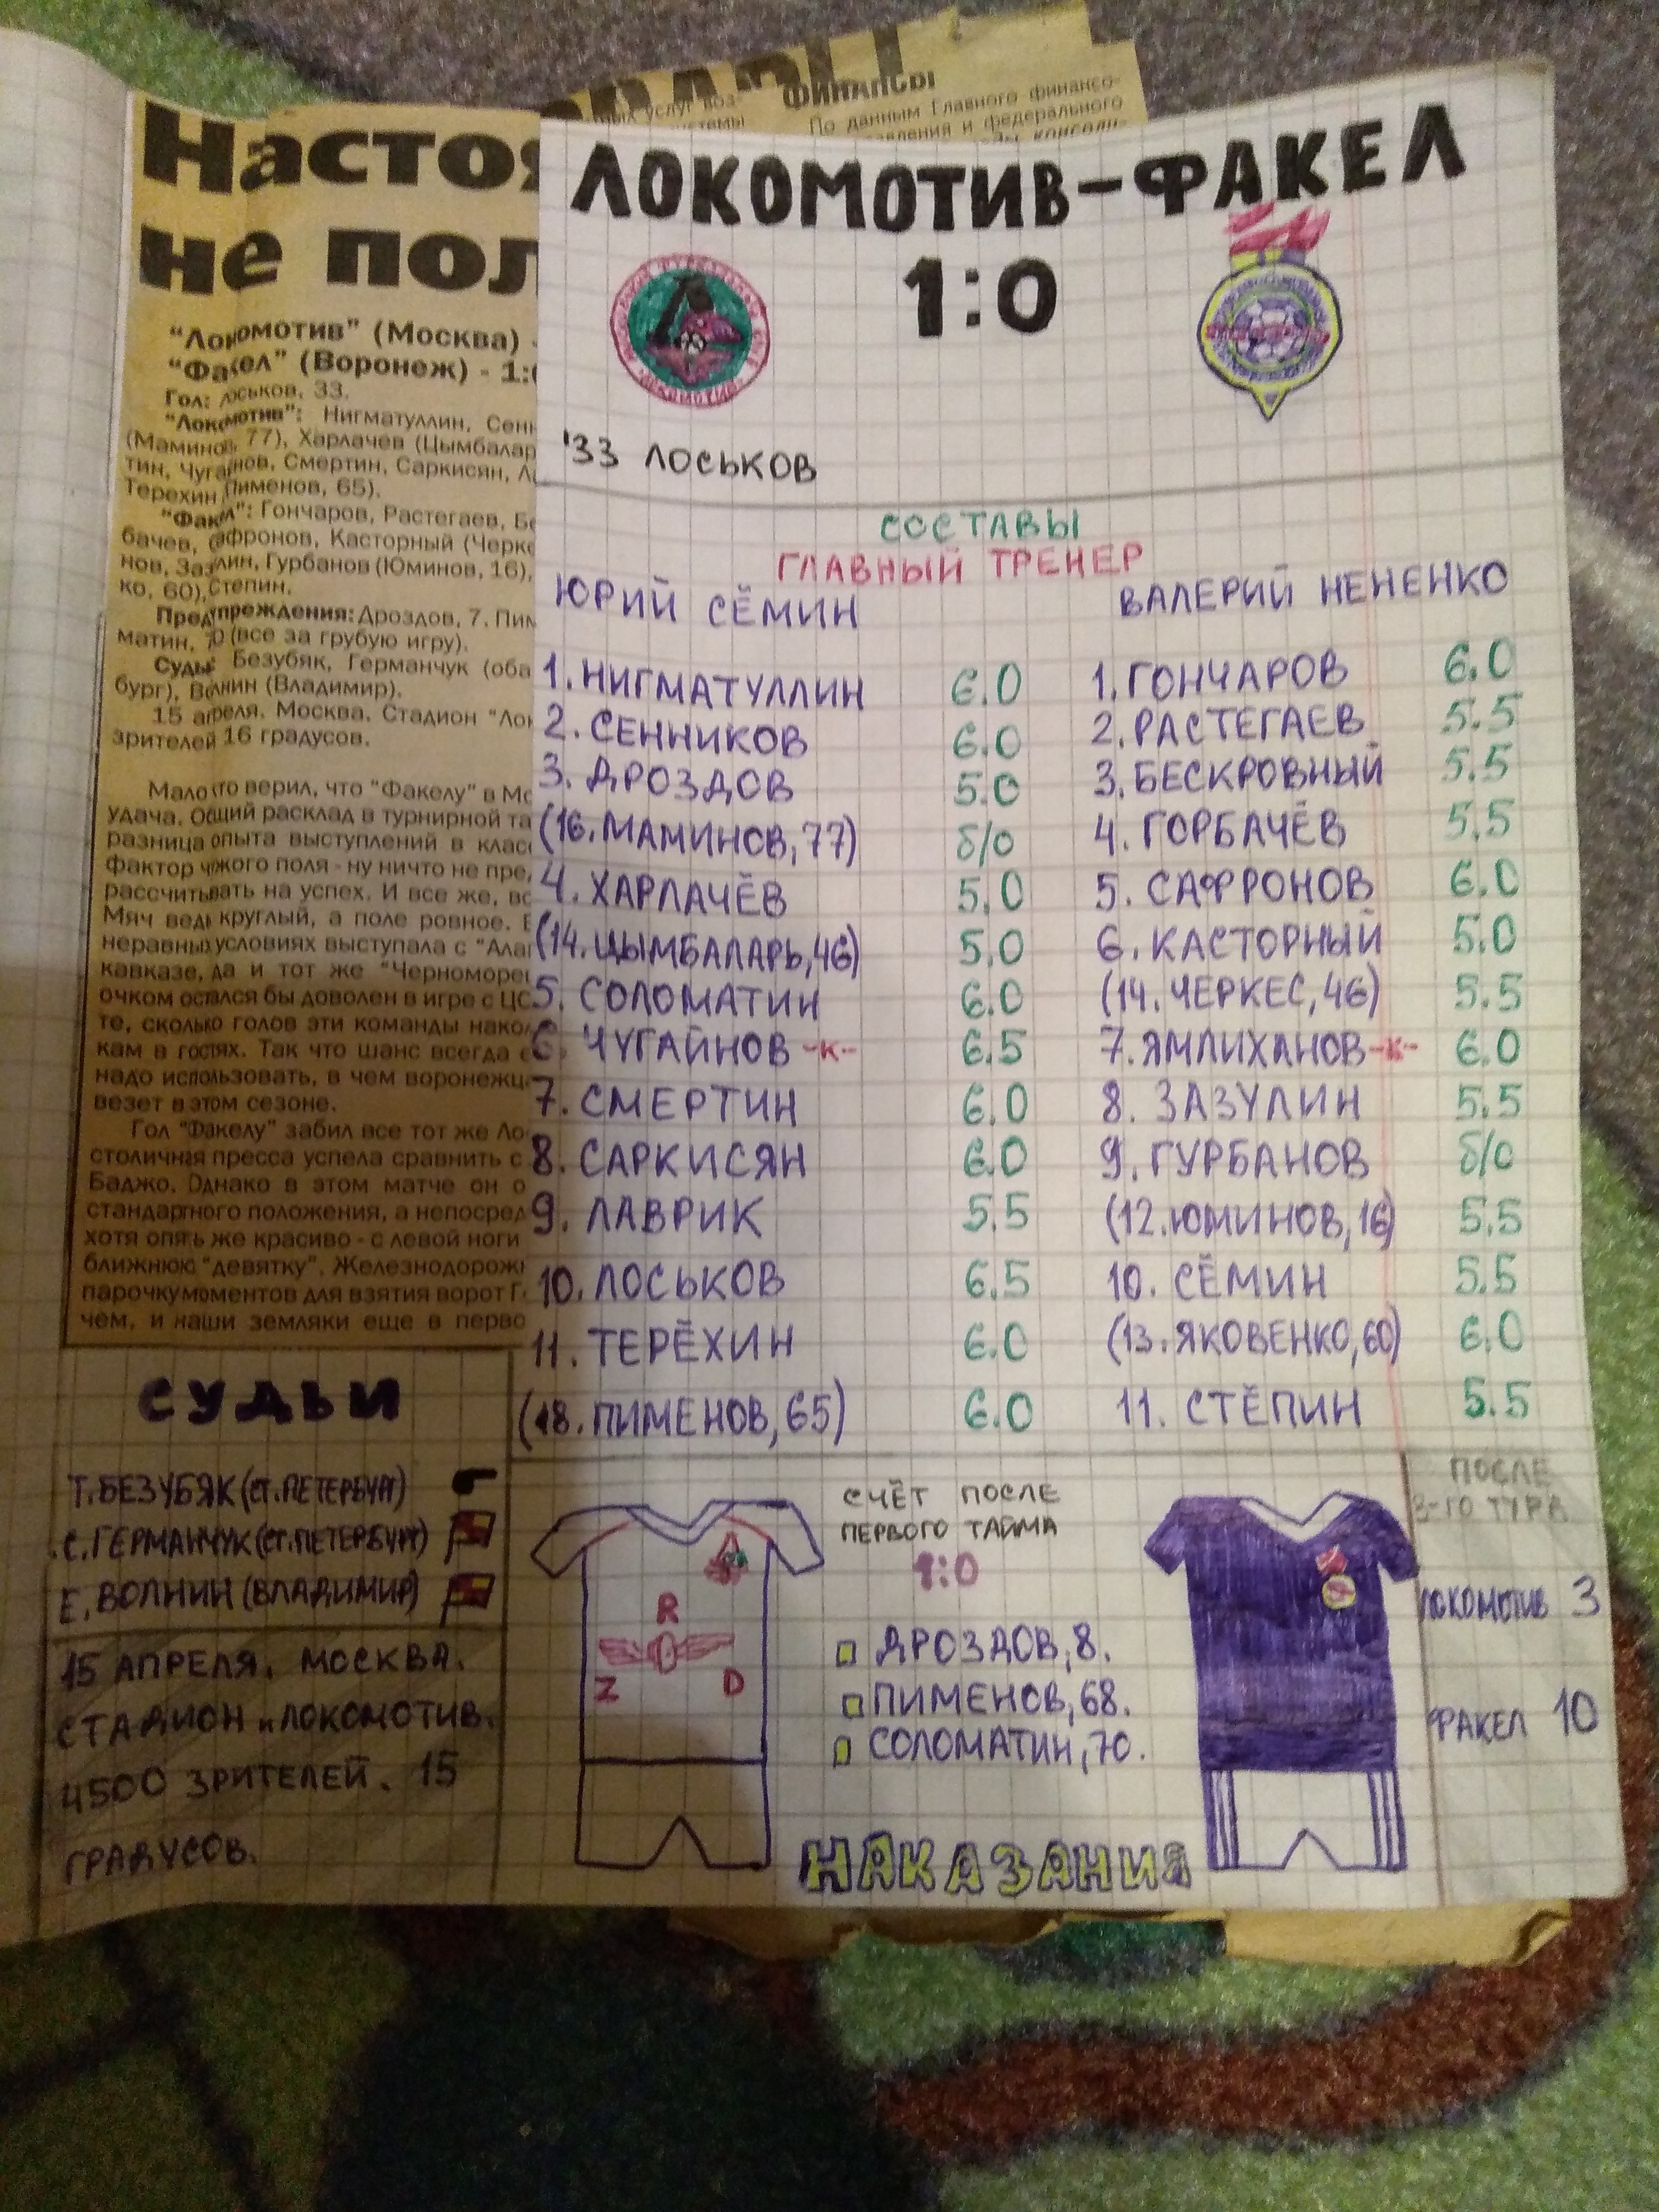 ФИНАНСЫ
По данным Главного финансо-
Настоя
не пол
"Локомотив" (Москва) -
"Факел" (Воронеж) - 1:0
Гол: Лоськов, 33.
"Локомотив": Нигматуллин, Сенн
(Маминов, 77), Харлачев (Цымбалар
тин, Чугайнов, Смертин, Саркисян, Л
Терехин Пименов, 65).
"Факел": Гончаров, Растегаев, Бе
бачев, Сафронов, Касторный (Черке
нов, Зазулин, Гурбанов (Юминов, 16),
ко, 60), Степин.
Предупреждения: Дроздов, 7. Пим
матин, 70 (все за грубую игру).
Судьи: Безубяк, Германчук (оба
бург), Волнин (Владимир).
15 апреля. Москва. Стадион "Лок
зрителей 16 градусов.
Мало кто верил, что "Факелу" в Мо
удача. Общий расклад в турнирной та
разница опыта выступлений в класс
фактор чужого поля - ну ничто не пре
рассчитывать на успех. И все же, вс
Мяч ведь круглый, а поле ровное. В
неравных условиях выступала с "Алан
кавказе, да и тот же "Черноморец
очком остался бы доволен в игре с ЦС
те, сколько голов эти команды нако
кам в гостях. Так что шанс всегда е
надо использовать, в чем воронежц
везет в этом сезоне.
Гол "Факелу" забил все тот же Ло
столичная пресса успела сравнить с
Баджо. Однако в этом матче он о
стандартного положения, а непосред
хотя опять же красиво - с левой ноги
ближнюю "девятку". Железнодорожн
парочку моментов для взятия ворот Г
чем, и наши земляки еще в перво
ЛОКОМОТИВ-ФАКЕЛ
1:0
'33 ЛОСЬКОВ
СОСТАВЫ
ГЛАВНЫЙ ТРЕНЕР
ЮРИЙ СЁМИН ВАЛЕРИЙ НЕНЕНКО
1. НИГМАТУЛЛИН 6.0 1. ГОНЧАРОВ 6.0
2. СЕННИКОВ 6.0 2. РАСТЕГАЕВ 5.5
3. ДРОЗДОВ 5.0 3. БЕСКРОВНЫЙ 5.5
(16. МАМИНОВ, 77) б/о 4. ГОРБАЧЁВ 5.5
4. ХАРЛАЧЁВ 5.0 5. САФРОНОВ 6.0
(14. ЦЫМБАЛАРЬ, 46) 5.0 6. КАСТОРНЫЙ 5.0
5. СОЛОМАТИН 6.0 (14. ЧЕРКЕС, 46) 5.5
6. ЧУГАЙНОВ -К- 6.5 7. ЯМЛИХАНОВ -К- 6.0
7. СМЕРТИН 6.0 8. ЗАЗУЛИН 5.5
8. САРКИСЯН 6.0 9. ГУРБАНОВ б/о
9. ЛАВРИК 5.5 (12. ЮМИНОВ, 16) 5.5
10. ЛОСЬКОВ 6.5 10. СЁМИН 5.5
11. ТЕРЁХИН 6.0 (13. ЯКОВЕНКО, 60) 6.0
(18. ПИМЕНОВ, 65) 6.0 11. СТЁПИН 5.5
СУДЬИ
Т. БЕЗУБЯК (СТ. ПЕТЕРБУРГ)
С. ГЕРМАНЧУК (СТ. ПЕТЕРБУРГ)
Е. ВОЛНИН (ВЛАДИМИР)
15 АПРЕЛЯ. МОСКВА.
СТАДИОН "ЛОКОМОТИВ.
4500 ЗРИТЕЛЕЙ. 15
ГРАДУСОВ.
R
Z D
СЧЁТ ПОСЛЕ
ПЕРВОГО ТАЙМА
1:0
ДРОЗДОВ, 8.
ПИМЕНОВ, 68.
СОЛОМАТИН, 70.
НАКАЗАНИЯ
ПОСЛЕ
3-ГО ТУРА
ЛОКОМОТИВ 3
ФАКЕЛ 10